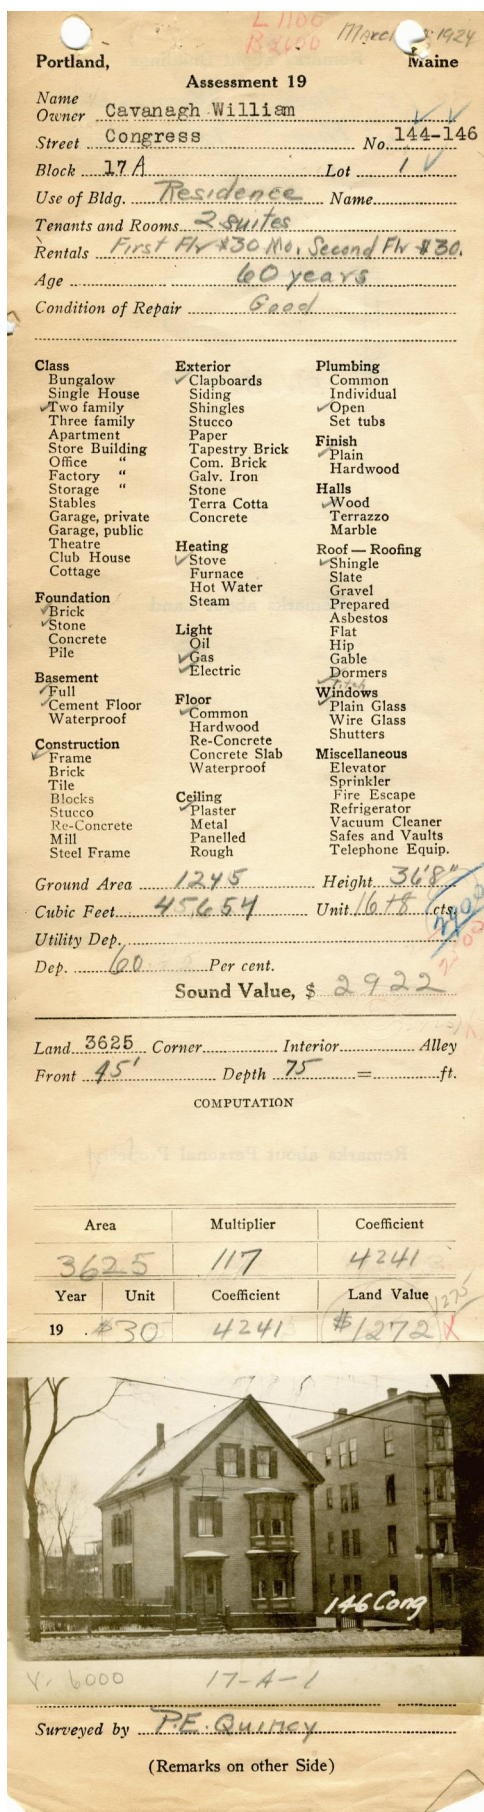 L 1100
B 2600
March 1924
Portland, Maine
Assessment 19
Name
Owner Cavanagh William
Street Congress No. 144-146
Block 17 A Lot 1
Use of Bldg. Residence Name
Tenants and Rooms 2 suites
Rentals First Flr $30 Mo. Second Flr $30.
Age 60 years
Condition of Repair Good
Class
Bungalow
Single House
Two family
Three family
Apartment
Store Building
Office "
Factory "
Storage "
Stables
Garage, private
Garage, public
Theatre
Club House
Cottage
Foundation
Brick
Stone
Concrete
Pile
Basement
Full
Cement Floor
Waterproof
Construction
Frame
Brick
Tile
Blocks
Stucco
Re-Concrete
Mill
Steel Frame
Exterior
Clapboards
Siding
Shingles
Stucco
Paper
Tapestry Brick
Com. Brick
Galv. Iron
Stone
Terra Cotta
Concrete
Heating
Stove
Furnace
Hot Water
Steam
Light
Oil
Gas
Electric
Floor
Common
Hardwood
Re-Concrete
Concrete Slab
Waterproof
Ceiling
Plaster
Metal
Panelled
Rough
Plumbing
Common
Individual
Open
Set tubs
Finish
Plain
Hardwood
Halls
Wood
Terrazzo
Marble
Roof — Roofing
Shingle
Slate
Gravel
Prepared
Asbestos
Flat
Hip
Gable
Dormers
Pitch
Windows
Plain Glass
Wire Glass
Shutters
Miscellaneous
Elevator
Sprinkler
Fire Escape
Refrigerator
Vacuum Cleaner
Safes and Vaults
Telephone Equip.
Ground Area 1245 Height 36'8"
Cubic Feet 45654 Unit 16+8 cts.
2900
Utility Dep.
Dep. 60 Per cent.
Sound Value, $ 2922
Land 3625 Corner Interior Alley
Front 45' Depth 75 = ft.
COMPUTATION
Area Multiplier Coefficient
3625 117 4241
Year Unit Coefficient Land Value
1275
19 $30 4241 $1272 X
146 Cong
V. 6000 17-A-1
Surveyed by P.E. Quincy
(Remarks on other Side)